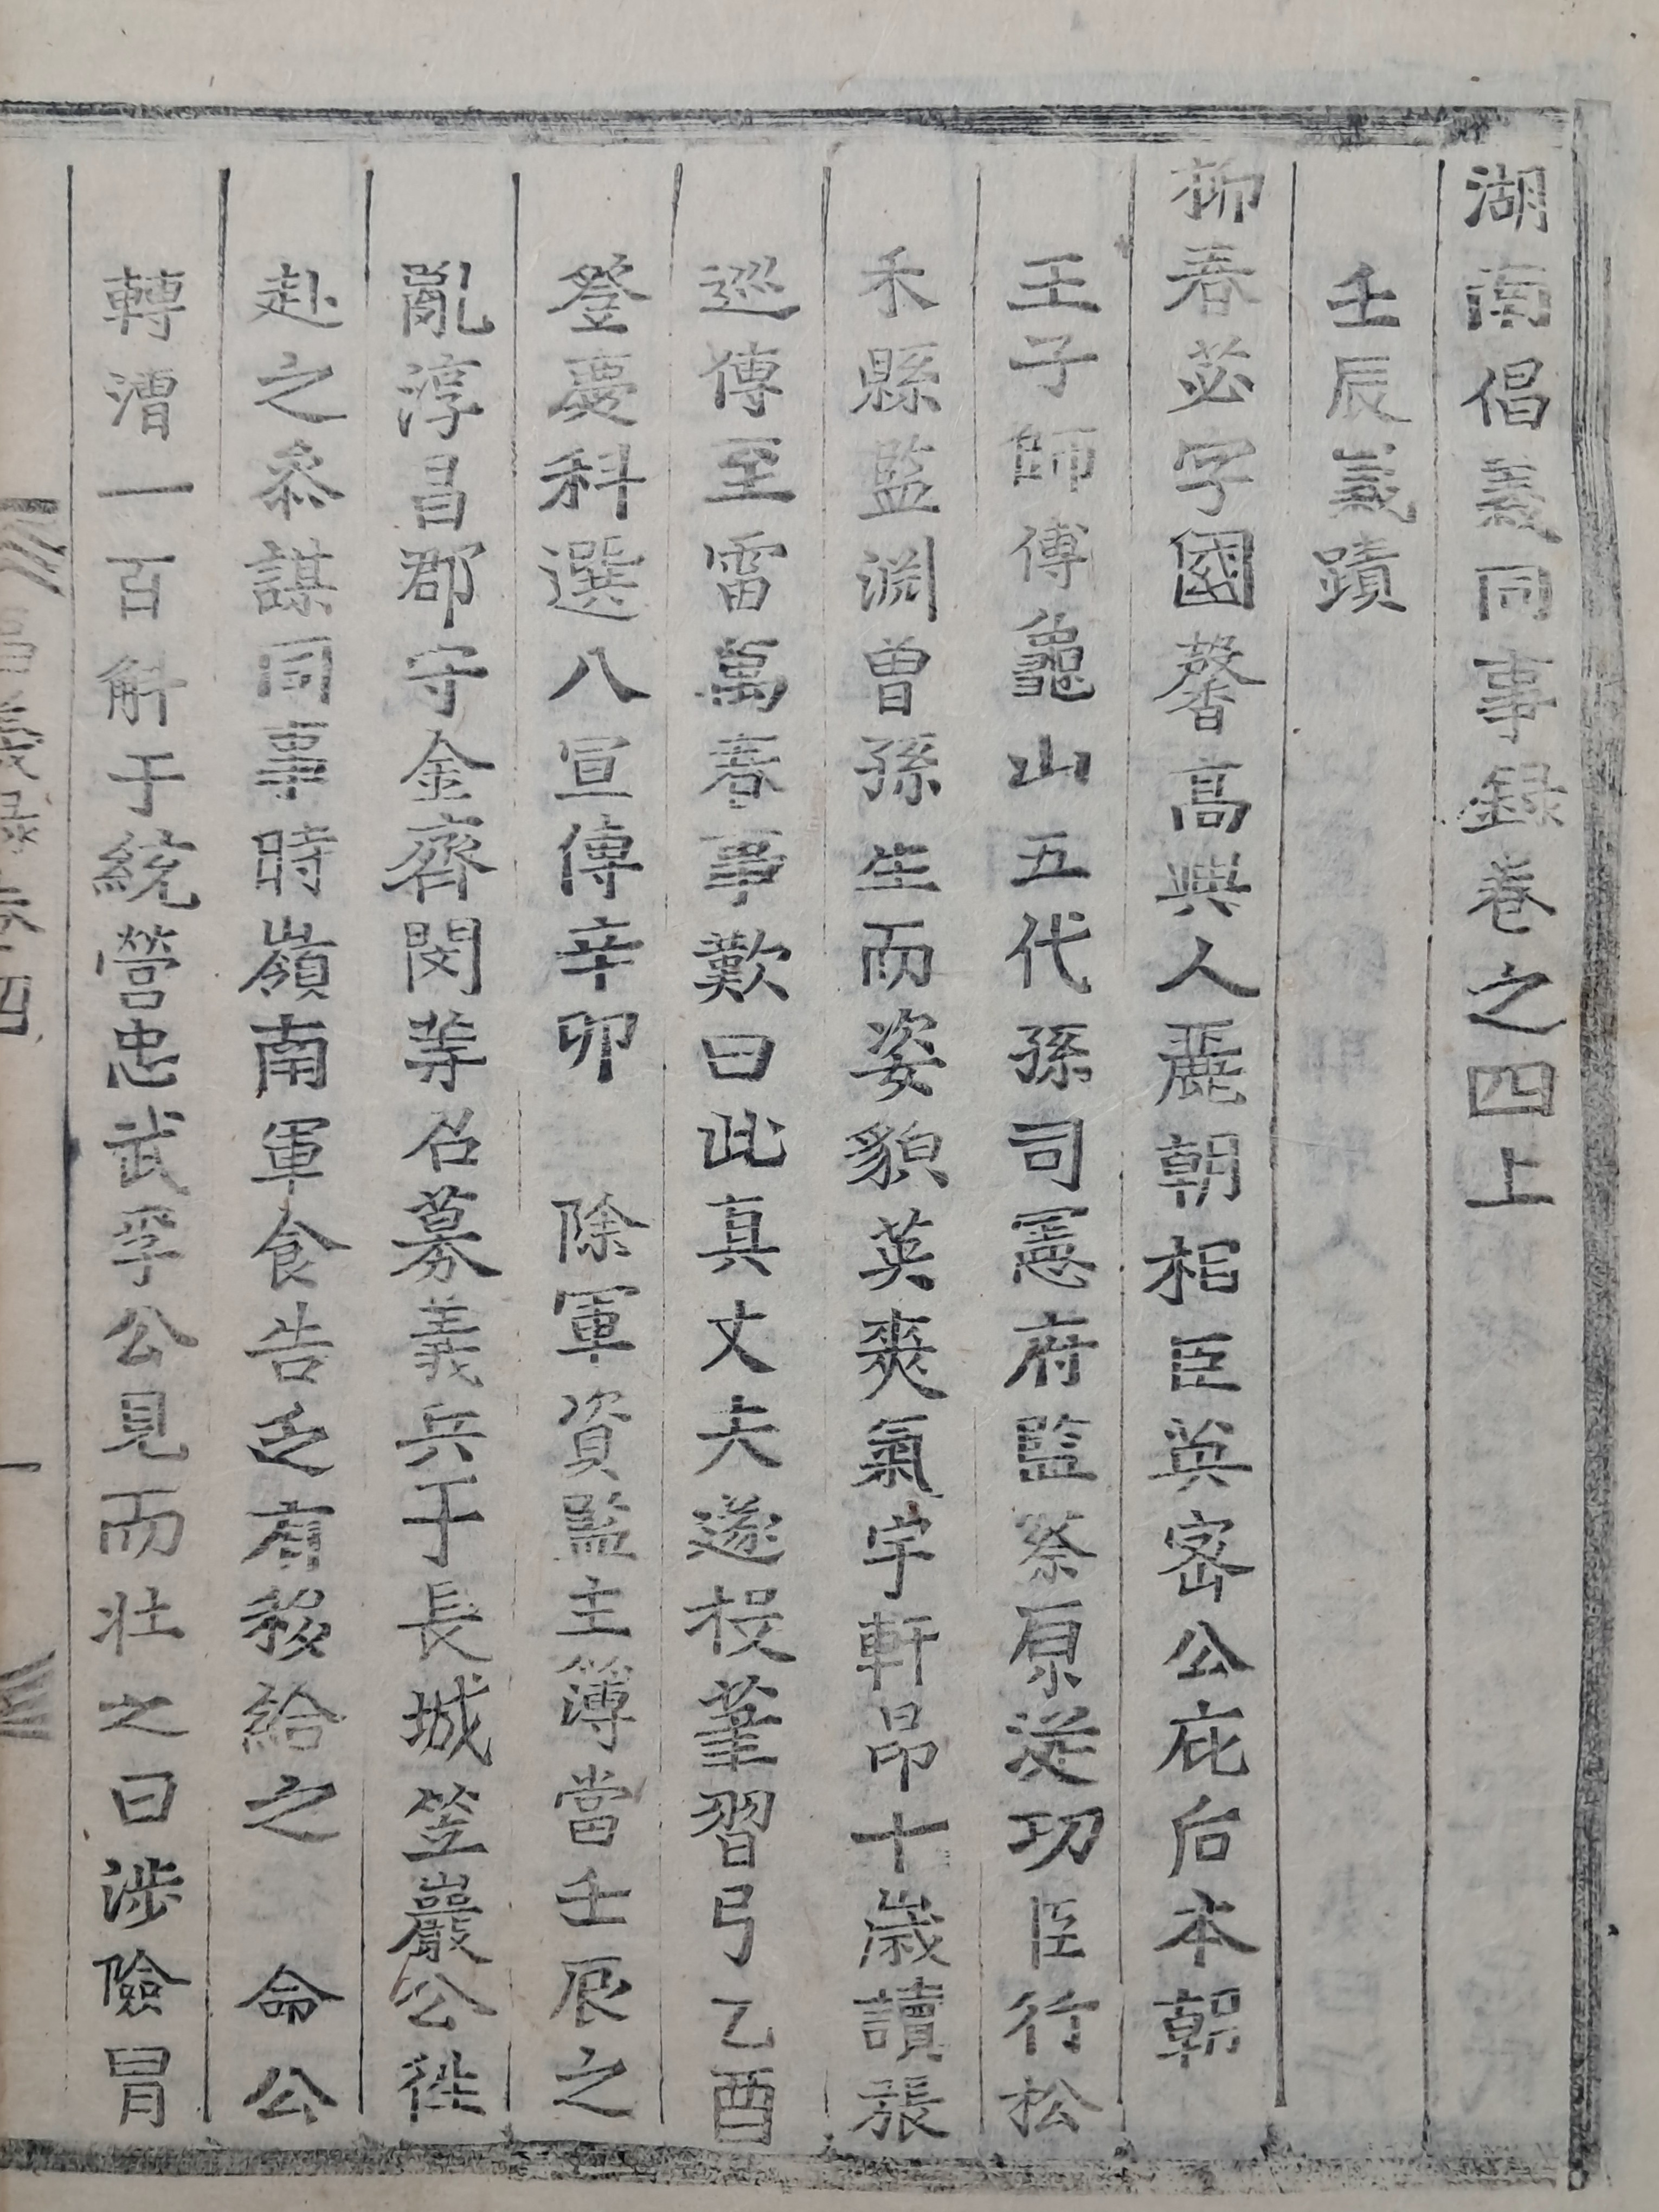 湖南倡義同事錄卷之四上
壬辰義蹟
柳春苾字國馨高興人麗朝相臣英密公庇后本朝
王子師傅龜山五代孫司憲府監察原從功臣行松
禾縣監淵曾孫生而姿貌英爽氣宇軒昂十歲讀張
巡傳至雷萬春事歎曰此真丈夫遂投筆習弓乙酉
登慶科選八宣傳辛卯 除軍資監主簿當壬辰之
亂淳昌郡守金齊閔等召募義兵于長城笠巖公徃
赴之叅謀同事時嶺南軍食告乏有移給之 命公
轉漕一百斛于統營忠武李公見而壯之曰涉險冒
昌義錄卷四
一